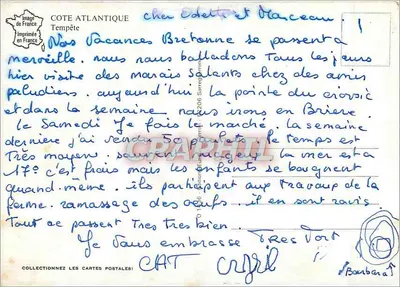 Image de France
Imprimée en France
COTE ATLANTIQUE
Tempête
cher Odette et Marceau. !
Nos Vacances Bretonne se passent a
merveille. nous nous balladons Tous les jours
hier visite des marais salants chez des amis
paludiers. aujourd'hui la pointe du croisic
et dans la semaine nous irons en Briere.
le Samedi Je fais le marché. la semaine
dernière j'ai vendu 50 le Temps est
Très moyen. la mer est a
17° c'est frais mais les enfants se baignent
quand-même. ils participent aux Travaux de la
ferme. ramassage des oeufs. il en sont ravis.
Tout se passent Tres Tres bien.
Je Vous embrasse Tres Fort
CAT
Barbara
COLLECTIONNEZ LES CARTES POSTALES: